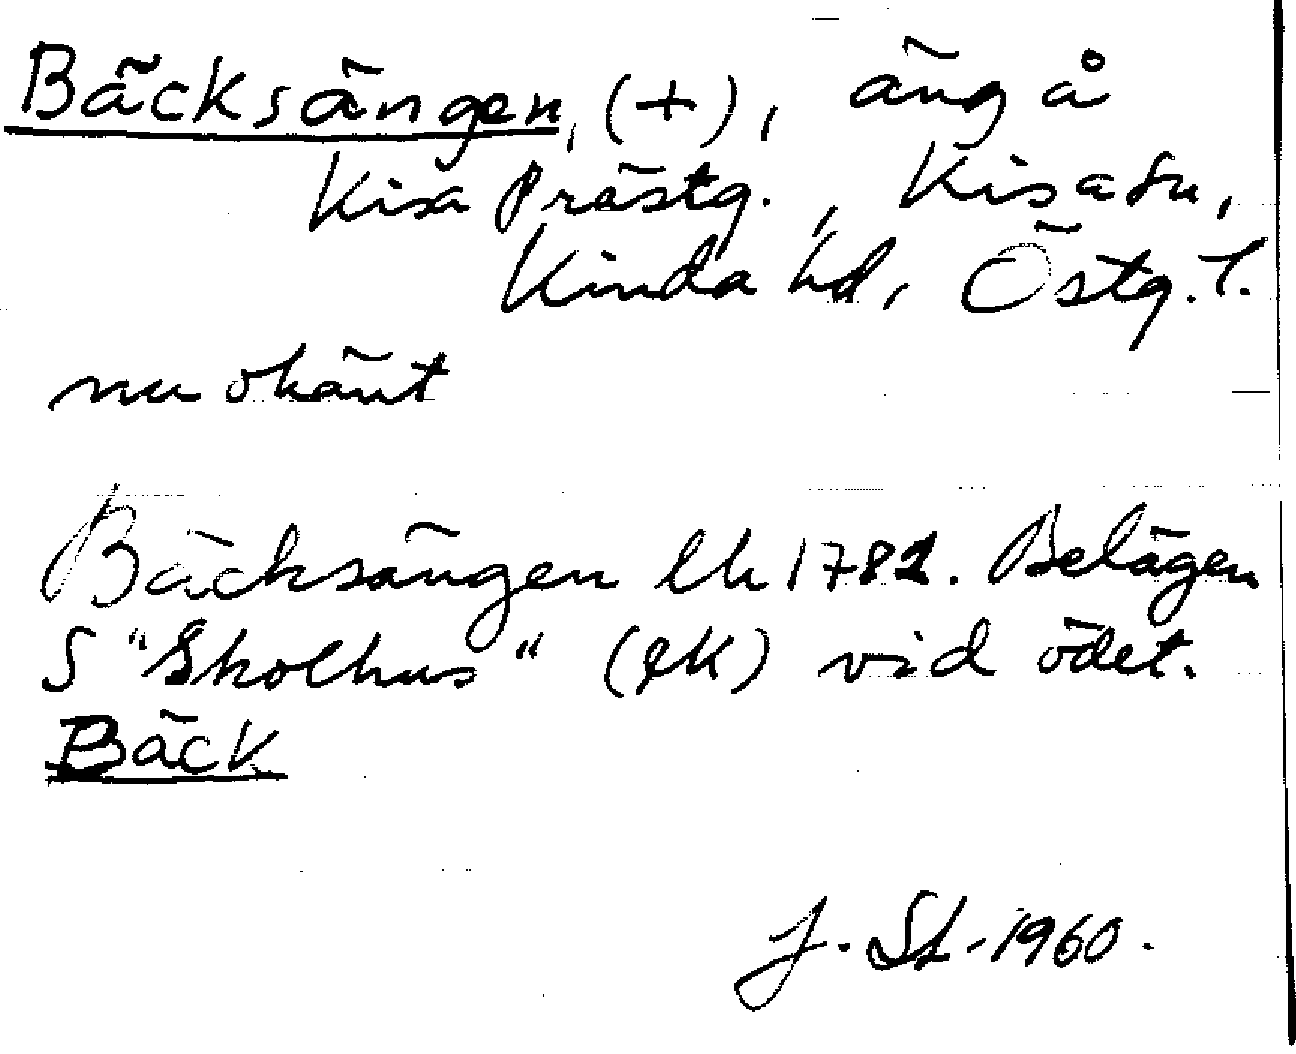 Bäcksängen, (+), äng å
Kisa Prästg., Kisa sn,
Kinda hd, Östg. l.
nu okänt
Bäcksängen lk 1782. Belägen
S "Skolhus" (ek) vid ödet.
Bäck
J. St. 1960.